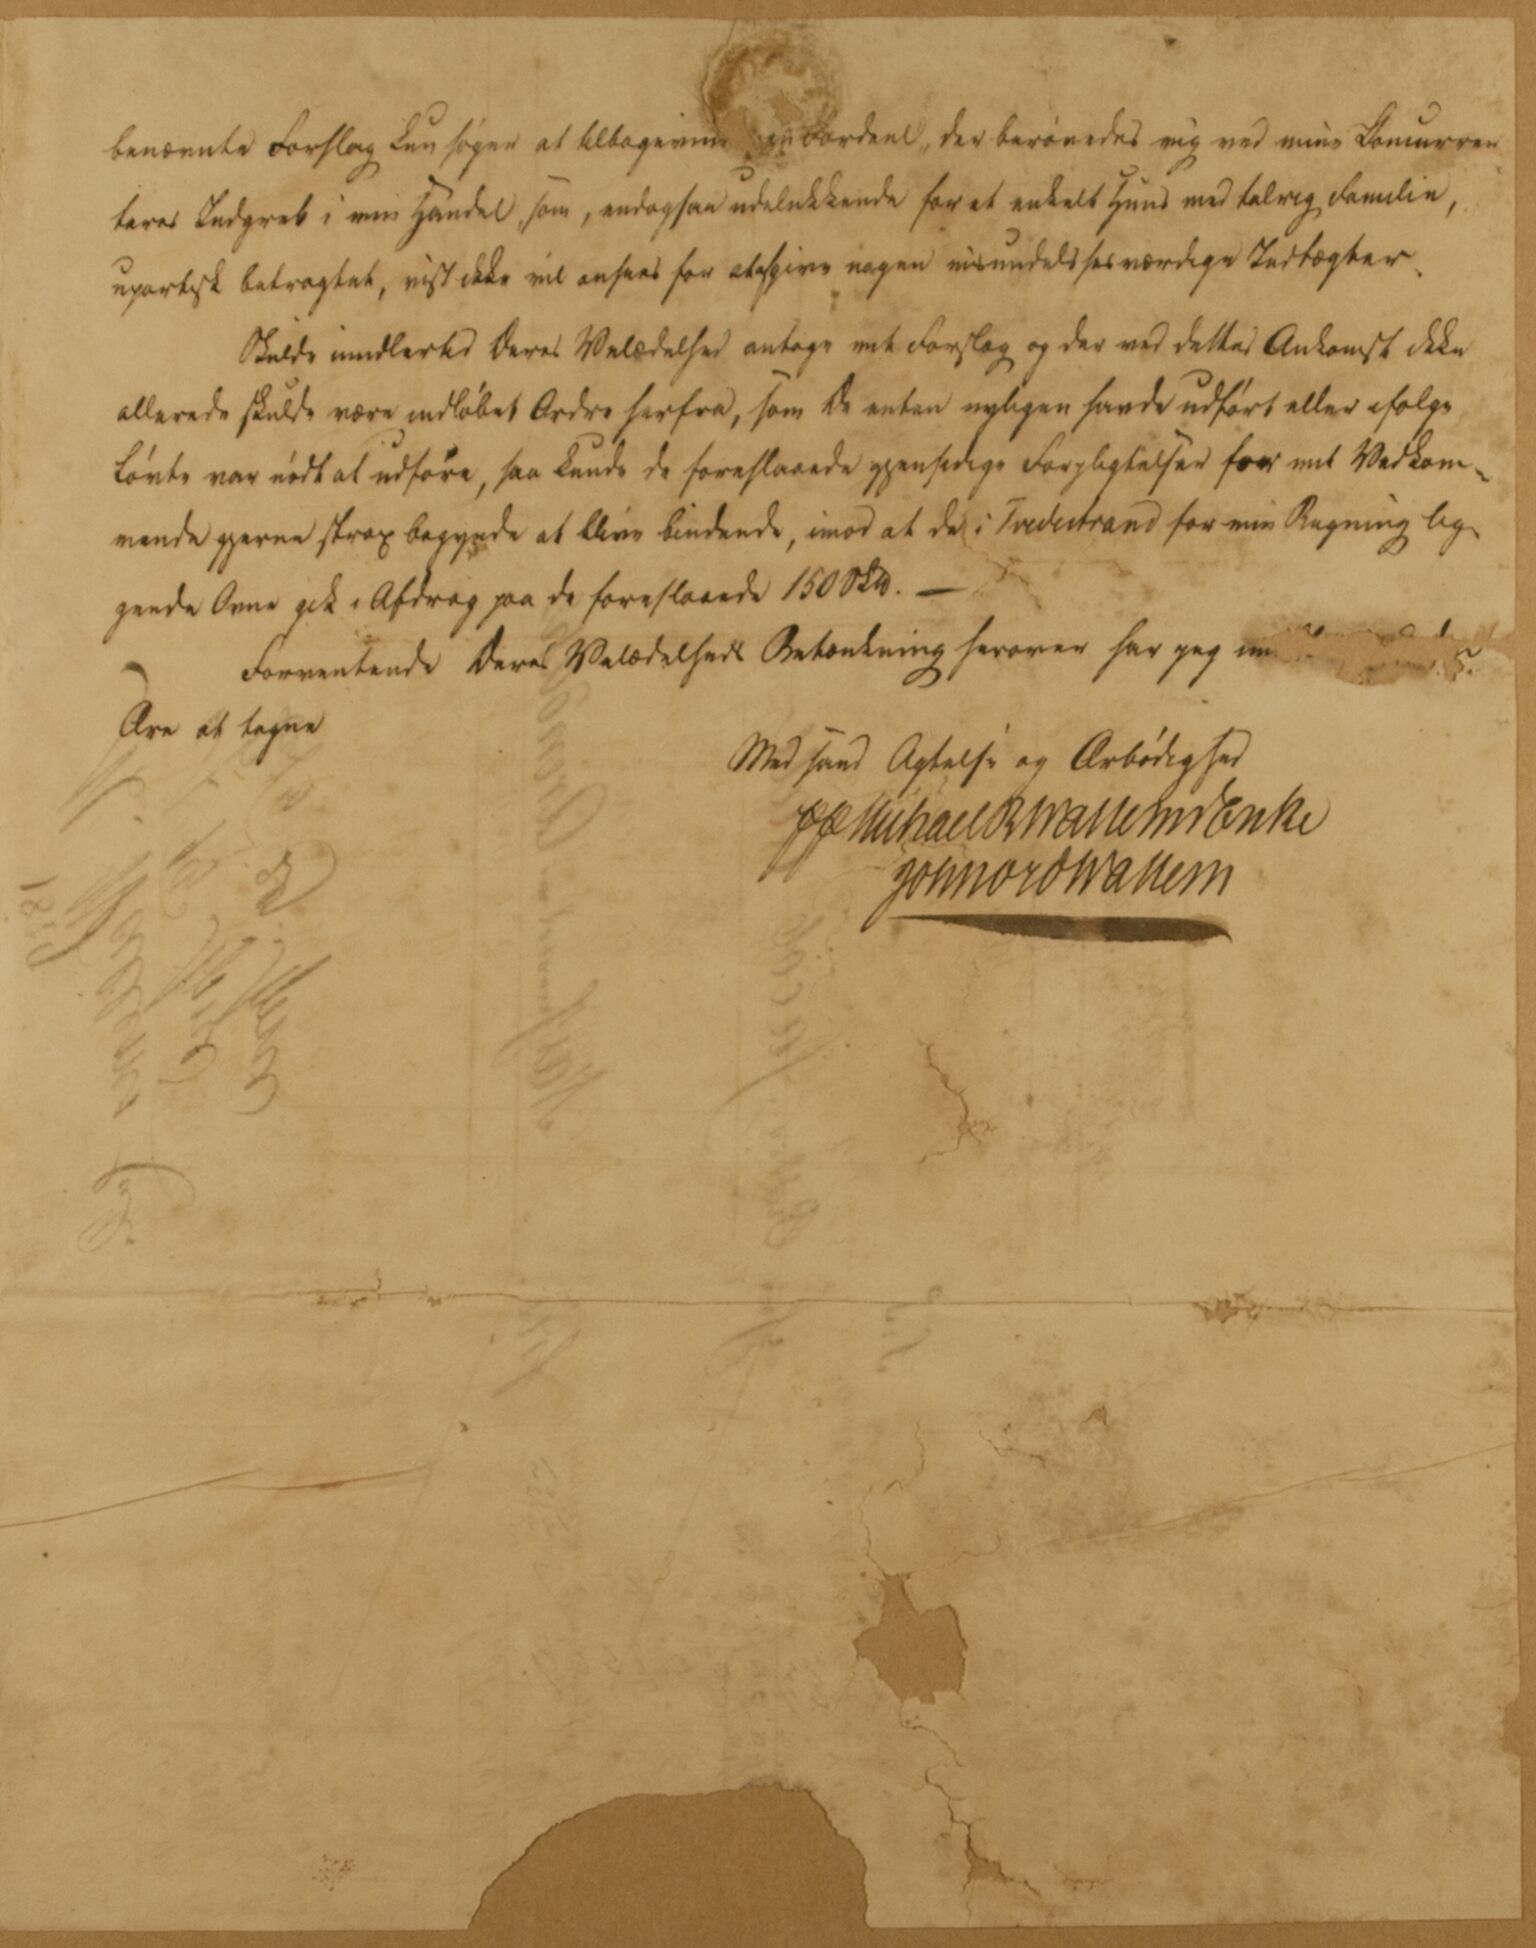 benævnte Forslag kun søger at tilbagevinde en Fordeel, der berøvedes mig ved mine Concurren
teres Indgreb i min Handel, som, endogsaa udelukkende for et enkelt Huus med talrig Familie,
upartisk betragtet, vist ikke vil ansees for at afgive nogen misundelsesværdige Indtægter.
Skulde imidlertid Deres Velædelhed antage mit Forslag og der ved dettes Ankomst ikke
allerede skulde være indløbet Ordre herfra, som De enten nyligen havde udført eller ifølge
Løvte var nødt at udføre, saa kunde de foreslaaede gjensidige Forpligtelser for mit Vedkom-
mende gjerne strax begynde at blive bindende, imod at de i Tvedestrand for min Regning lig
gende Ovne gik i Afdrag paa de foreslaaede 150 Sk℔. —
Forventende Deres Velædelheds Betænkning herover har jeg
Ære at tegne
Med sand Agtelse og Ærbødighed
pp Michael R Wallems Enke
John ord Wallem